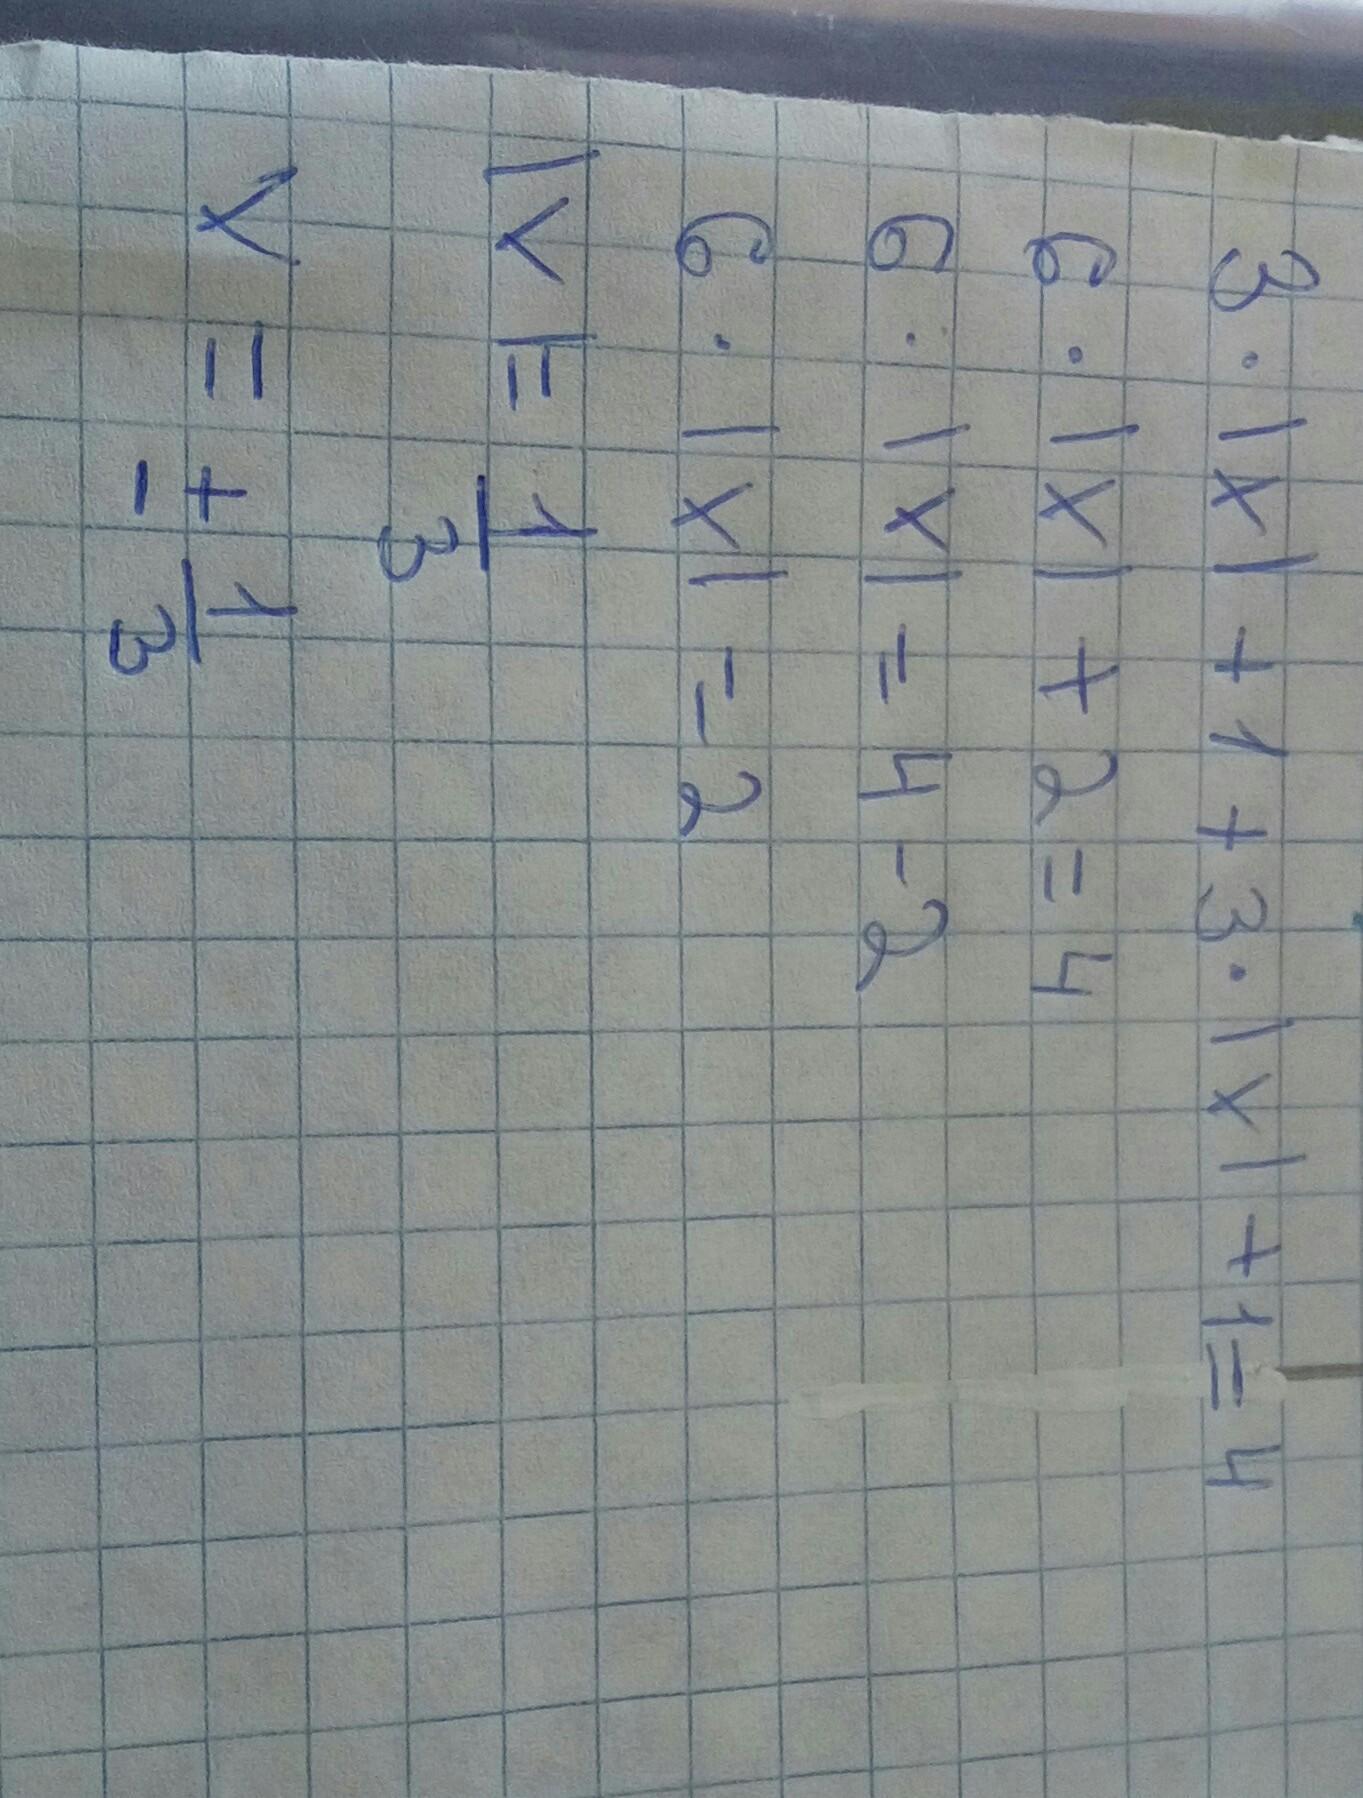 3 · |x| + 1 + 3 · |x| + 1 = 4
6 · |x| + 2 = 4
6 · |x| = 4 - 2
6 · |x| = 2
|x| = 1/3
x = ± 1/3